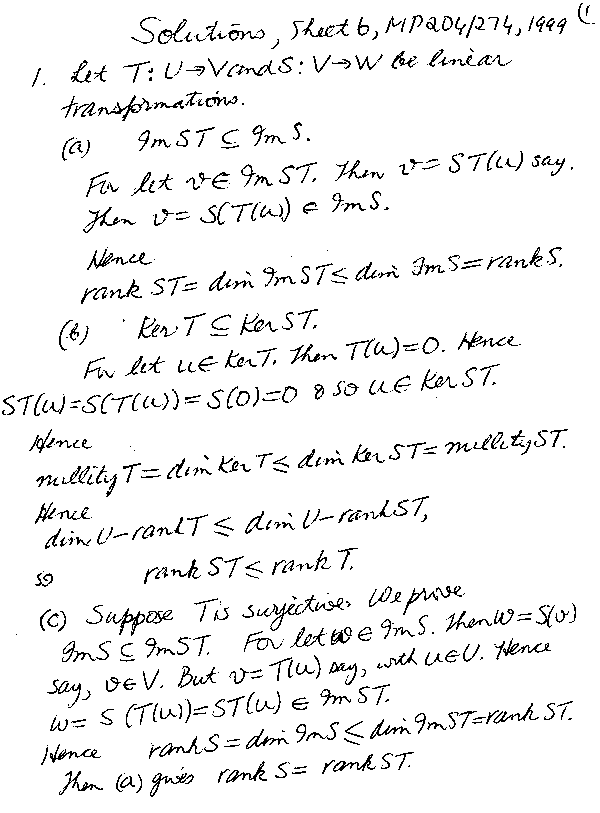 Solutions, Sheet 6, MP204/274, 1999 (1
1. Let T: U→V and S: V→W be linear
transformations.
(a) Im ST ⊆ Im S.
For let v ∈ Im ST. Then v = ST(u) say.
Then v = S(T(u)) ∈ Im S.
Hence
rank ST = dim Im ST ≤ dim Im S = rank S.
(b) Ker T ⊆ Ker ST.
For let u ∈ Ker T. Then T(u)=0. Hence
ST(u)=S(T(u))=S(0)=0 & so u ∈ Ker ST.
Hence
nullity T = dim Ker T ≤ dim Ker ST = nullity ST.
Hence
dim U − rank T ≤ dim U − rank ST,
so rank ST ≤ rank T.
(c) Suppose T is surjective. We prove
Im S ⊆ Im ST. For let w ∈ Im S. Then w = S(v)
say, v ∈ V. But v = T(u) say, with u ∈ U. Hence
w = S(T(u)) = ST(u) ∈ Im ST.
Hence rank S = dim Im S ≤ dim Im ST = rank ST.
Then (a) gives rank S = rank ST.